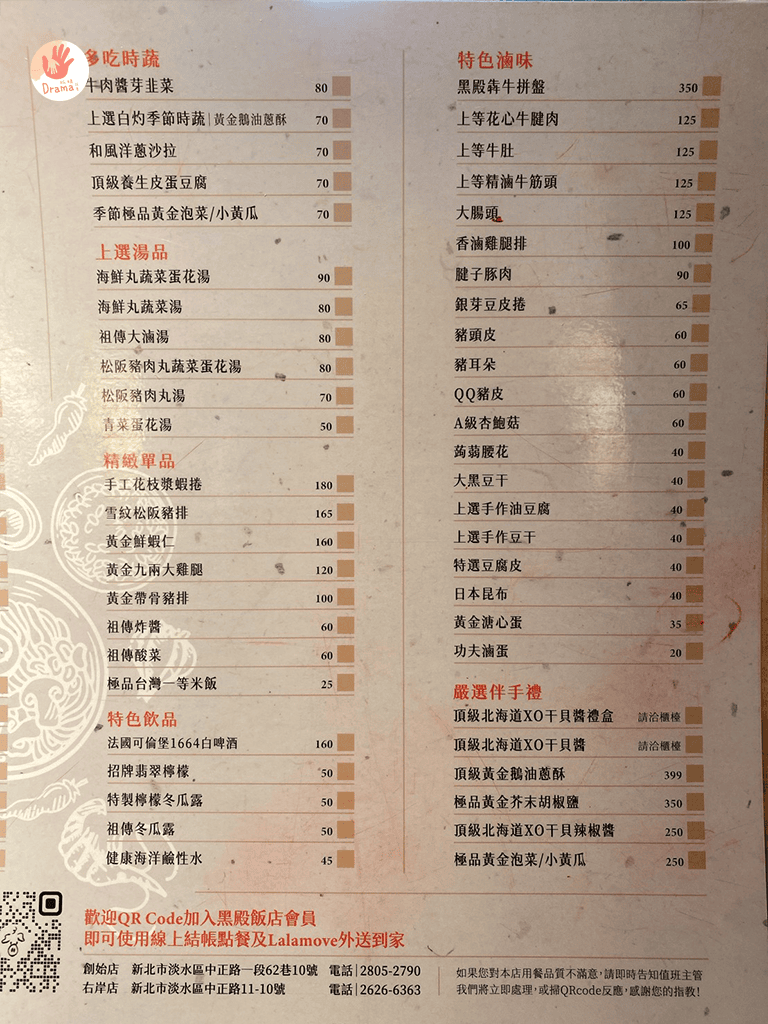 Drama
多吃時蔬
牛肉醬芽韭菜 80
上選白灼季節時蔬|黃金鵝油蔥酥 70
和風洋蔥沙拉 70
頂級養生皮蛋豆腐 70
季節極品黃金泡菜/小黃瓜 70
上選湯品
海鮮丸蔬菜蛋花湯 90
海鮮丸蔬菜湯 80
祖傳大滷湯 80
松阪豬肉丸蔬菜蛋花湯 80
松阪豬肉丸湯 70
青菜蛋花湯 50
精緻單品
手工花枝漿蝦捲 180
雪紋松阪豬排 165
黃金鮮蝦仁 160
黃金九兩大雞腿 120
黃金帶骨豬排 100
祖傳炸醬 60
祖傳酸菜 60
極品台灣一等米飯 25
特色飲品
法國可倫堡1664白啤酒 160
招牌翡翠檸檬 50
特製檸檬冬瓜露 50
祖傳冬瓜露 50
健康海洋鹼性水 45
特色滷味
黑殿犇牛拼盤 350
上等花心牛腱肉 125
上等牛肚 125
上等精滷牛筋頭 125
大腸頭 125
香滷雞腿排 100
腱子豚肉 90
銀芽豆皮捲 65
豬頭皮 60
豬耳朵 60
QQ豬皮 60
A級杏鮑菇 60
蒟蒻腰花 40
大黑豆干 40
上選手作油豆腐 40
上選手作豆干 40
特選豆腐皮 40
日本昆布 40
黃金溏心蛋 35
功夫滷蛋 20
嚴選伴手禮
頂級北海道XO干貝醬禮盒 請洽櫃檯
頂級北海道XO干貝醬 請洽櫃檯
頂級黃金鵝油蔥酥 399
極品黃金芥末胡椒鹽 350
頂級北海道XO干貝辣椒醬 250
極品黃金泡菜/小黃瓜 250
歡迎QR Code加入黑殿飯店會員
即可使用線上結帳點餐及Lalamove外送到家
創始店 新北市淡水區中正路一段62巷10號 電話|2805-2790
右岸店 新北市淡水區中正路11-10號 電話|2626-6363
如果您對本店用餐品質不滿意，請即時告知值班主管
我們將立即處理，或掃QRcode反應，感謝您的指教！